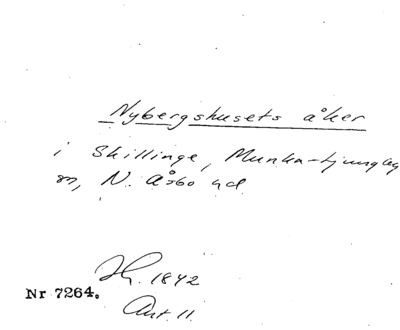 Nybergshusets åker
i Skillinge, Munka-Ljungby
sn, N. Åsbo hd
1842
Nr 7264.
Ant. 11.